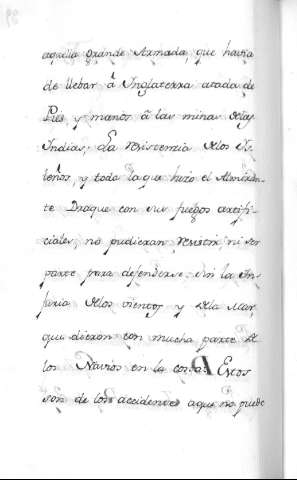 aquella grande Armada, que havia
de llebar â Inglaterra atada de
Pies, y manos â las minas delas
Indias; La resistenzia delos Is-
leños, y todo lo que hizo el Almiran-
te Draque con sus fuegos artifi-
ciales, no pudieran resistir, ni ser
parte para defenderse sin la In-
furia delos vientos y dela Mar,
que dieron con mucha parte de
los Navios en la costa. Estos
son de los accidentes aque no puede